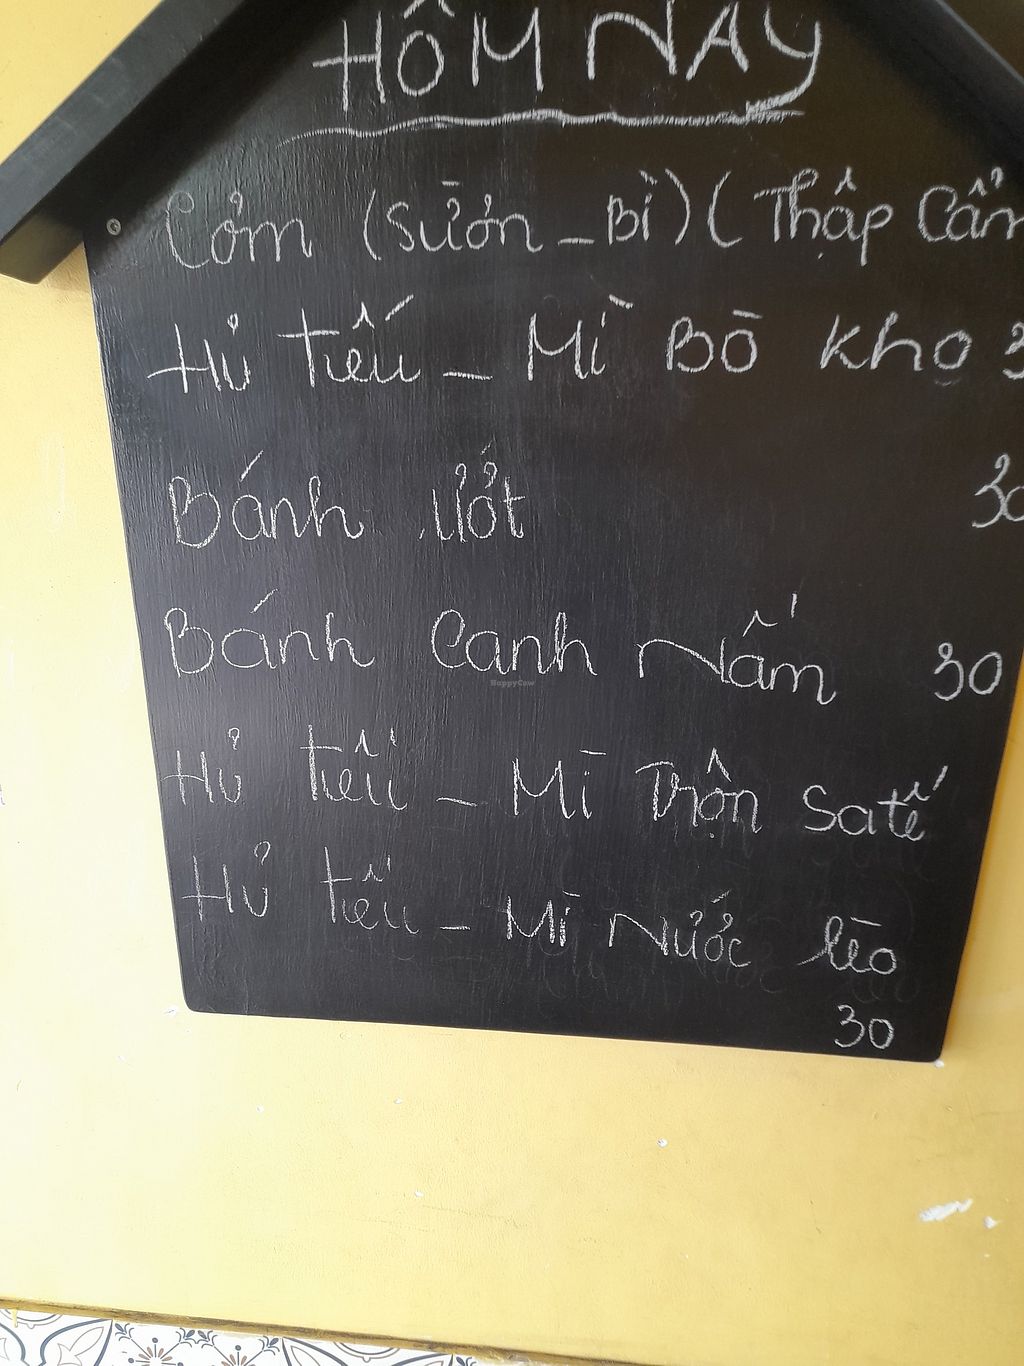 HÔM NAY
Cơm (Sườn - Bì) (Thập Cẩm
Hủ tiếu - Mì Bò kho 3
Bánh ướt 30
Bánh Canh Nấm 30
Hủ tiếu - Mì Trộn Satế
Hủ tiếu - Mì Nước lèo
30
HappyCow